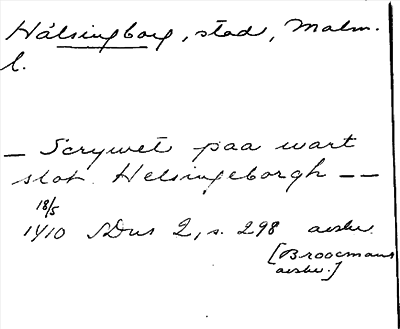 Hälsingborg, stad, Malm.
l.
— Scrywet paa wart
slot Helsingeborgh — —
18/5
1410 SDns 2, s. 298 avskr.
[Broocmans
avskr.]